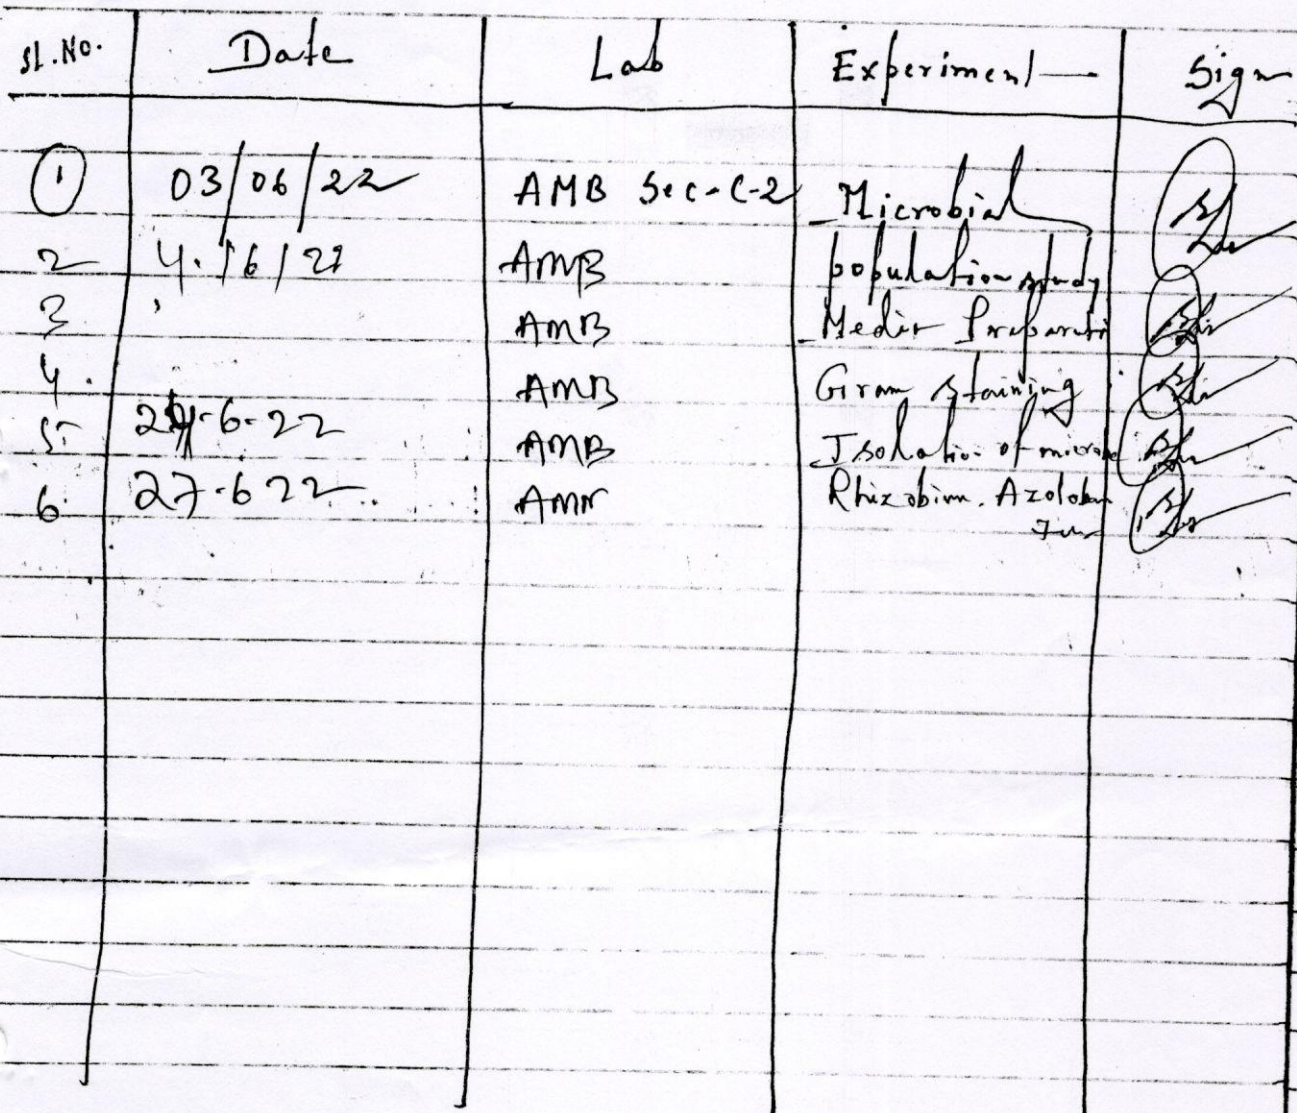 Sl. No. Date Lab Experiment Sign
1 03/06/22 AMB Sec-C-2 Microbial
2 4. /6/22 AMB population study
3 AMB Media
4. AMB Gram staining
5 24-6-22 AMB Isolation of
6. 27-6 22 Rhizobium.